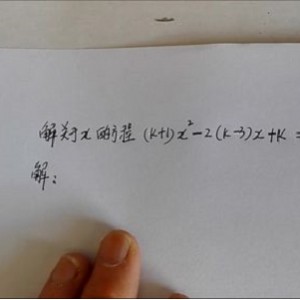 解关于x的方程 (k+1)x²-2(k-3)x+k=
解：